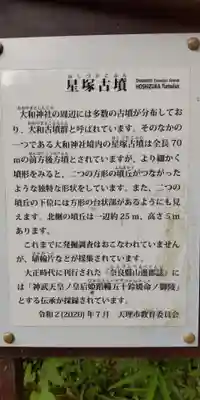 ほしづかこふん
星塚古墳
HOSHIZUKA Tumulus
大和神社の周辺には多数の古墳が分布してお
り、大和古墳群と呼ばれています。そのなかの
一つである大和神社境内の星塚古墳は全長70
mの前方後方墳とされていますが、より細かく
墳形をみると、二つの方形の墳丘がつながった
ような独特な形状をしています。また、二つの
墳丘の下位には方形の台状部があるようにも見
えます。北側の墳丘は一辺約25m、高さ5mあ
ります。
これまでに発掘調査はおこなわれていません
が、埴輪片などが採集されています。
大正時代に刊行された『奈良縣山邊郡誌』に
は「神武天皇ノ皇后姫蹈鞴五十鈴媛命ノ御陵」
とする伝承が採録されています。
令和2(2020)年7月 天理市教育委員会